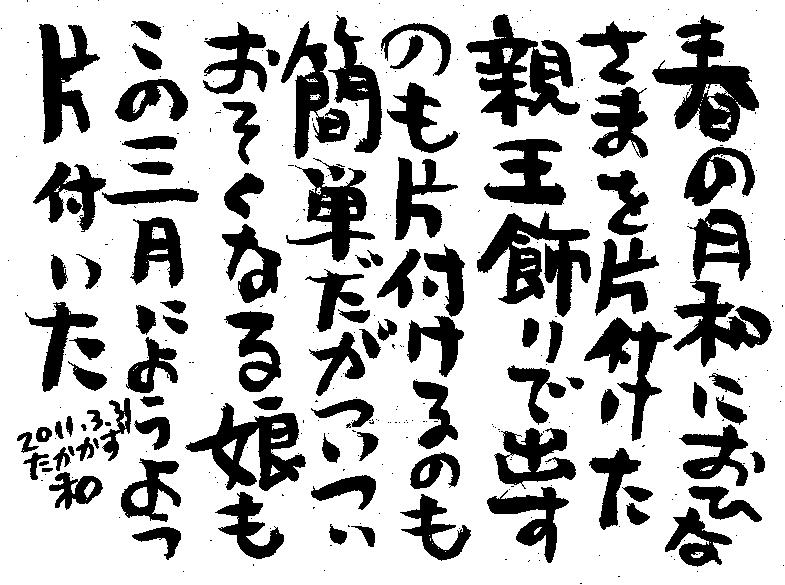 春の月和におひな
さまを片付けた
親王飾りで出す
のも片付けるのも
簡単だがついつい
おそくなる娘も
この三月にようよう
片付いた
2011.3.31
たかかず
和